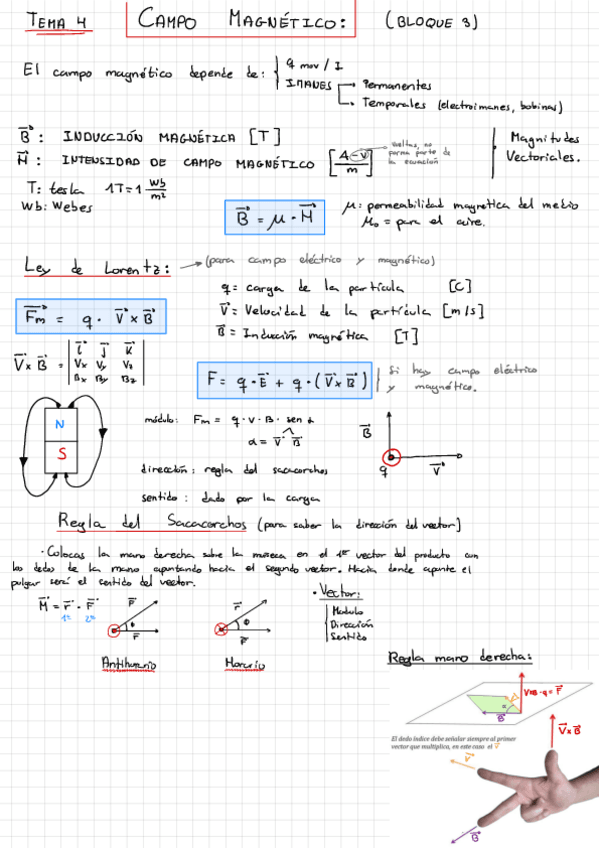 TEMA 4 CAMPO MAGNÉTICO: (BLOQUE 3)
El campo magnético depende de: { q mov / I
IMANES → Permanentes
→ Temporales (electroimanes, bobinas)
B⃗: INDUCCIÓN MAGNÉTICA [T]
H⃗: INTENSIDAD DE CAMPO MAGNÉTICO [A-v/m]
vueltas, no forma parte de la ecuación
Magnitudes
Vectoriales.
T: tesla 1T = 1 Wb/m²
Wb: Webes
B⃗ = μ · H⃗
μ: permeabilidad magnetica del medio
μ₀ = para el aire.
Ley de Lorentz: → (para campo eléctrico y magnético)
q = carga de la partícula [C]
F⃗m = q · V⃗ x B⃗
V⃗ = Velocidad de la partícula [m/s]
B⃗ = Inducción magnética [T]
V⃗ x B⃗ = | i⃗ j⃗ k⃗ |
| Vx Vy Vz |
| Bx By Bz |
F = q · E⃗ + q · (V⃗ x B⃗)
Si hay campo eléctrico
y magnético.
N
S
módulo: Fm = q · v · B · sen α
α = V⃗ B⃗
dirección: regla del sacacorchos
sentido: dado por la carga
B⃗
q
V⃗
Regla del Sacacorchos (para saber la dirección del vector)
· Colocas la mano derecha sobre la muñeca en el 1er vector del producto con
los dedos de la mano apuntando hacia el segundo vector. Hacia donde apunte el
pulgar será el sentido del vector.
M⃗ = r⃗ · F⃗
1º 2º
F⃗
θ
r⃗
Antihorario
r⃗
θ
F⃗
Horario
· Vector:
Modulo
Dirección
Sentido
Regla mano derecha:
VxB·q = F⃗
V⃗
α
B⃗
El dedo índice debe señalar siempre al primer
vector que multiplico, en este caso el v⃗
V⃗xB⃗
V⃗
B⃗